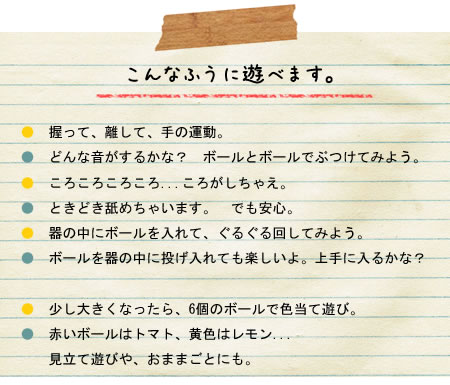 こんなふうに遊べます。
握って、離して、手の運動。
どんな音がするかな？　ボールとボールでぶつけてみよう。
ころころころころ...ころがしちゃえ。
ときどき舐めちゃいます。　でも安心。
器の中にボールを入れて、ぐるぐる回してみよう。
ボールを器の中に投げ入れても楽しいよ。上手に入るかな？
少し大きくなったら、6個のボールで色当て遊び。
赤いボールはトマト、黄色はレモン...
見立て遊びや、おままごとにも。